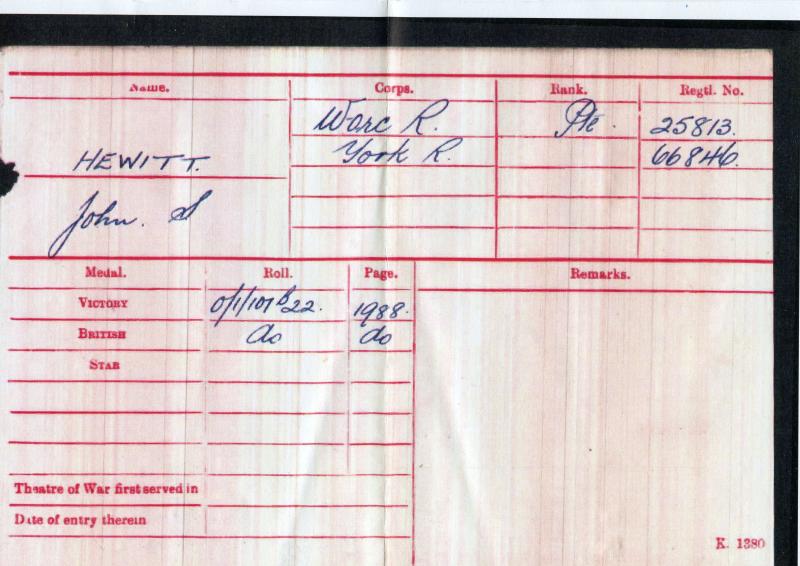 Name. Corps. Rank. Regtl. No.
Warc R. Pte. 25813.
HEWITT. York R. 66846.
John. S
Medal. Roll. Page. Remarks.
VICTORY 0/1/107 B 22. 1988.
BRITISH do do
STAR
Theatre of War first served in
Date of entry therein
K. 1380